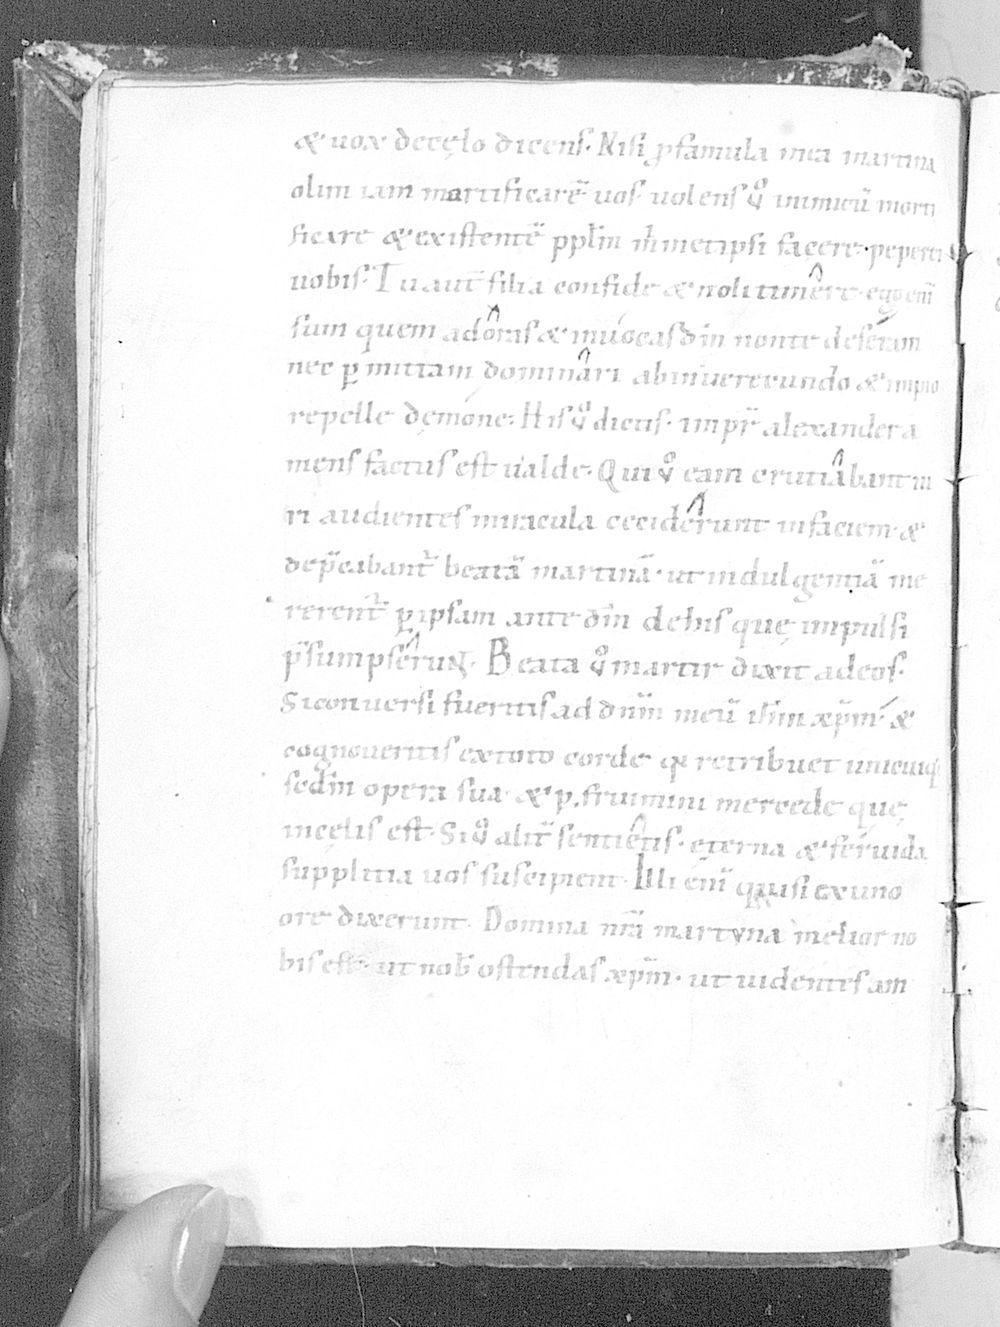 & uox decęlo dicens. Nisi ꝓfamula mea martina
olim iam mortificarē uos. uolens ů inimicū morti
ficare & existentē ppłm m̄ metipsi facere. peperci
uobis. Tu aut̄ filia confide & noli timere. ego enī
sum quem adoras & inuocas dm̄ non te deseram
nec ꝑmittam dominari ab inuerecundo & impio
repelle dęmone. His ů dictis. impr̄ alexander a
mens factus est ualde. Qui ů eam cruciabant ui
ri audientes miracula ceciderunt in faciem. &
dep̄cabant̄ beatā martinā. ut indulgentiā me
rerent̄ ꝑ ipsam ante dm̄ de his quę impulsi
p̄sumpserunt. Beata ů martir dixit ad eos.
Si conuersi fueritis ad dnm̄ meū ihm̄ xp̄m. &
cognoueritis ex toto corde qđ retribuet unicuiqꝫ
scdm̄ opera sua. & p.fruimini mercede quę
in cęlis est. Si ů alit̄ sentietis. ęterna & feruida
supplitia uos suscipient. Illi enī quasi ex uno
ore dixerunt. Domina nr̄a martyna melior no
bis est. ut nob̄ ostendas xp̄m. ut uidentes am